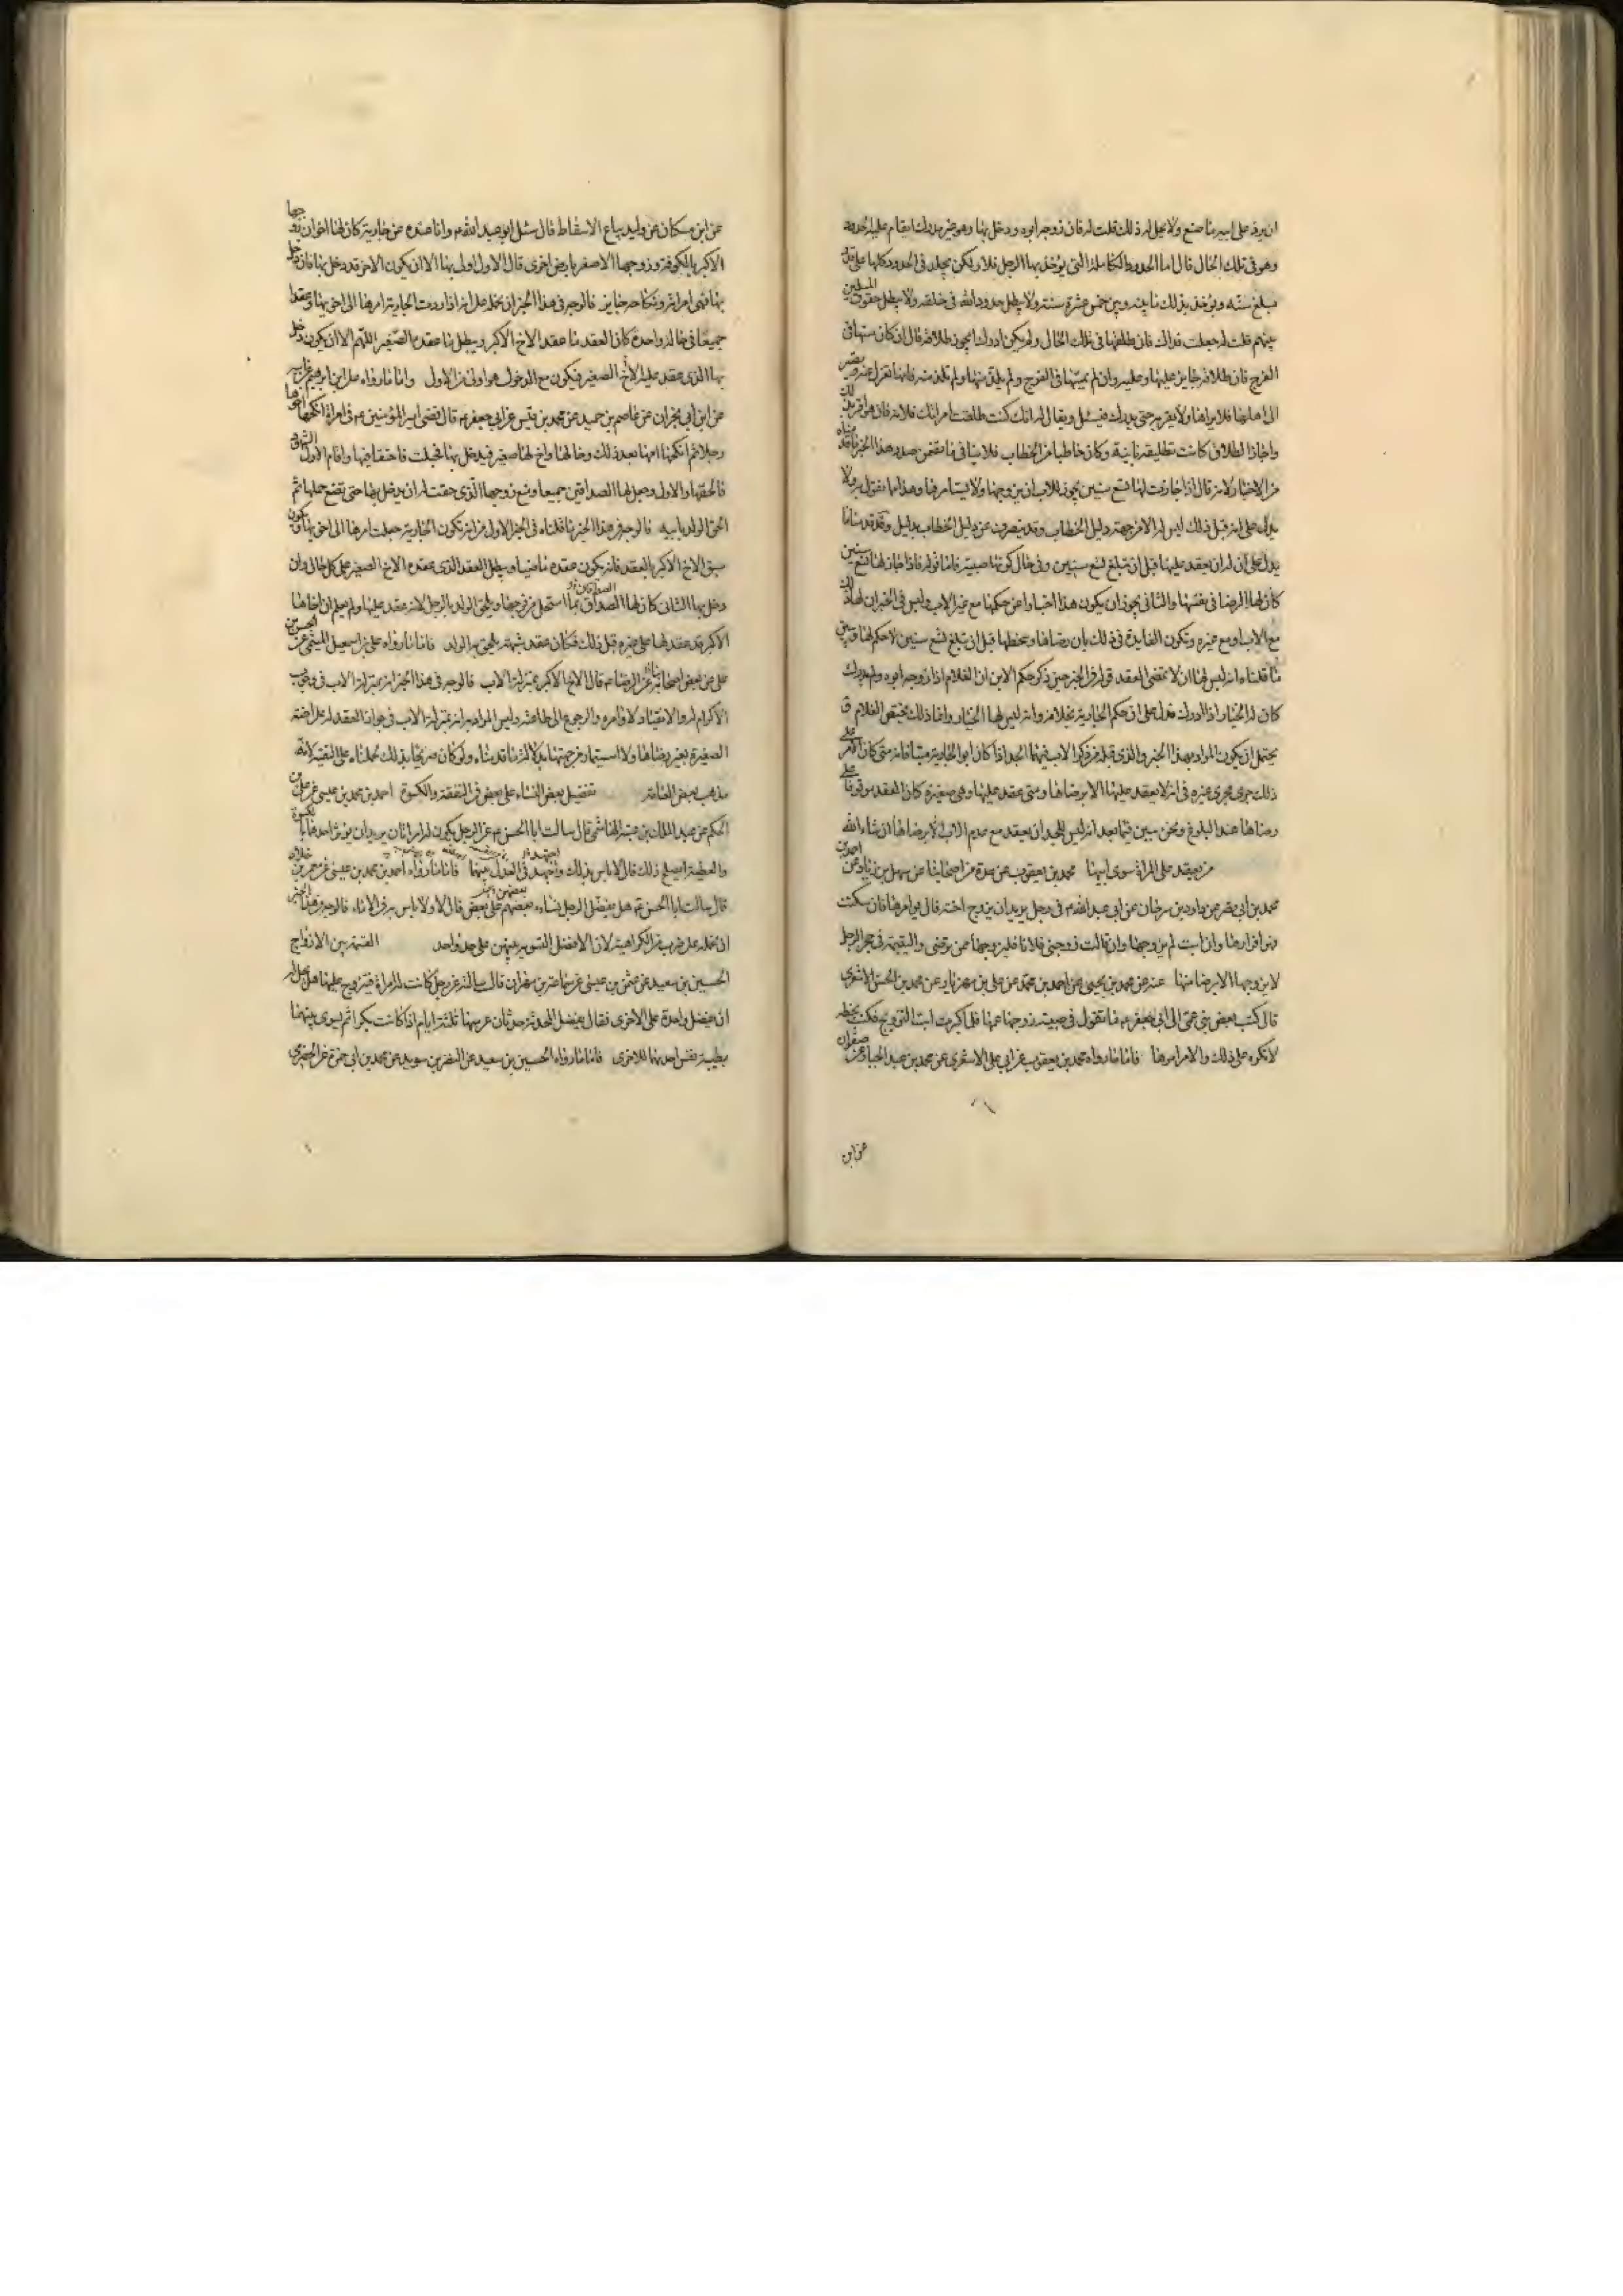 ان يرد على ابيه ما صنع ولا يحل له ذلك قلت له فان زوجه ابوه ودخل بها وهو غير مدرك ايقام عليه الحدود
وهو فى تلك الحال قال اما الحدود الكاملة التى يؤخذ بها الرجل فلا ولكن يجلد فى الحدود كلها على قدر
مبلغ سنه ويؤخذ بذلك ما بينه وبين خمس عشرة سنة ولا يبطل حدود الله فى خلقه ولا يبطل حقوق المسلمين
بينهم قلت له جعلت فداك فان طلقها فى تلك الحال ولم يكن ادرك ايجوز طلاقه قال ان كان مسها فى
الفرج فان طلاقه جايز عليها وعليه وان لم يمسها فى الفرج ولم يلذ منها ولم تلذ منه فانها تعزل عنه وتصير
الى اهلها فلا يراها ولا تقربه حتى يدرك فيسئل ويقال له انك كنت طلقت امراتك فلانة فان هو اقر بذلك
واجاز الطلاق كانت تطليقة باينة وكان خاطبا من الخطاب فلا ينافى ما تضمن صدر هذا الخبر ما قدمناه
من الاخبار لانه قال اذا جازت لها تسع سنين يجوز للاب ان يزوجها ولا يستامرها وهذا مما نقول به ولا
يدل على انه قبل ذلك ليس له الا من جهة دليل الخطاب وقد ينصرف عن دليل الخطاب بدليل وقد قدمنا ما
يدل على ان له ان يعقد عليها قبل ان تبلغ تسع سنين وفى حال كونها صبية فاما قوله فاذا جاز لها تسع سنين
كان لها الرضا فى نفسها والتانى يجوز ان يكون هذا اخبارا عن حكمها مع غير الاب وليس فى الخبر ان لها ذلك
مع الاب او مع غيره وتكون الفايدة فى ذلك بان رضاها وسخطها قبل ان تبلغ تسع سنين لا حكم لها
ما قلناه انه ليس لها ان لا تمضى العقد قوله فى الخبر حين ذكر حكم الابن ان الغلام اذا زوجه ابوه ولم يدرك
كان له الخيار اذا ادرك فدل على ان حكم الجارية بخلافه وانه ليس لها الخيار وانما ذلك يختص الغلام و
يحتمل ان يكون المراد بهذا الخبر والذى قبله من ذكر الاب فيهما الجد اذا كان ابو الجارية ميتا فانه متى كان الامر على
ذلك جرى مجرى غيره فى انه لا يعقد عليها الا برضاها ومتى عقد عليها وهى صغيرة كان العقد موقوفا على
رضاها عند البلوغ ونحن نبين فيما بعد انه ليس للجد ان يعقد مع عدم الاب الا برضاها ان شاء الله
من يعقد على المراة سوى ابيها محمد بن يعقوب عن عدة من اصحابنا عن سهل بن زياد عن احمد بن
محمد بن ابى نصر عن داود بن سرحان عن ابى عبد الله ع فى رجل يريد ان يزوج اخته قال يوامرها فان سكتت
فهو اقرارها وان ابت لم يزوجها وان قالت زوجنى فلانا فليزوجها ممن ترضى واليتيمة فى حجر الرجل
لا يزوجها الا برضا منها عنه عن محمد بن يحيى عن احمد بن محمد عن على بن مهزيار عن محمد بن الحسن الاشعرى
قال كتب بعض بنى عمى الى ابى جعفر ع ما تقول فى صبية زوجها عمها فلما كبرت ابت التزويج فكتب بخطه
لا تكره على ذلك والامر امرها فاما ما رواه محمد بن يعقوب عن ابى على الاشعرى عن محمد بن عبد الجبار عن صفوان
عن ابن
عن ابن مسكان عن وليد بياع الاسفاط قال سئل ابو عبد الله ع وانا عنده عن جارية كان لها اخوان زوجها
الاكبر بالكوفة وزوجها الاصغر بارض اخرى قال الاول اولى بها الا ان يكون الاخر قد دخل بها فان دخل
بها فهى امراته ونكاحه جايز فالوجه فى هذا الخبر ان نحمله على انه اذا ردت الجارية امرها الى اخويها وعقدا
جميعا فى حالة واحدة كان العقد ما عقد الاخ الاكبر ويبطل ما عقده الصغير اللهم الا ان يكون دخل
بها الذى عقد عليه الاخ الصغير فيكون مع الدخول هو اولى من الاول واما ما رواه على بن ابراهيم عن ابيه
عن ابن ابى نجران عن عاصم بن حميد عن محمد بن قيس عن ابى جعفر ع قال قضى امير المؤمنين ع فى امراة انكحها اخوها
رجلا ثم انكحتها امها بعد ذلك رجلا وخالها واخ لها صغير فدخل بها فحبلت فاحتقا فيها واقام الاول الشهود
فالحقها بالاول وجعل لها الصداقين جميعا ومنع زوجها الذى حقت له ان يدخل بها حتى تضع حملها ثم
الحق الولد بابيه فالوجه فى هذا الخبر ما قلناه فى الخبر الاول من انه تكون الجارية جعلت امرها الى اخويها فيكون
سبق الاخ الاكبر بالعقد فانه يكون عقده ماضيا ويبطل العقد الذى عقده الاخ الصغير على كل حال وان
دخل بها الثانى كان لها الصداق بما استحل من فرجها ويلحق الولد بالرجل لانه عقد عليها ولم يعلم ان اخاها
الاكبر قد عقد لها على غيره قبل ذلك فكان عقد شبهة يلحق به الولد فاما ما رواه على بن اسمعيل الميثمى عن الحسن بن
على عن بعض اصحابنا عن الرضا ع قال الاخ الاكبر بمنزلة الاب فالوجه فى هذا الخبر انه بمنزلة الاب فى وجوب
الاكرام له والانقياد لاوامره والرجوع الى طاعته وليس المراد به انه بمنزلة الاب فى جواز العقد له على اخته
الصغيرة بغير رضاها ولا استيمار من جهتها بدلالة ما قدمناه ولو كان صريحا بذلك لحملناه على التقية لانه
مذهب بعض العامة تفضيل بعض النساء على بعض فى النفقة والكسوة احمد بن محمد بن عيسى عن على بن
الحكم عن عبد الملك بن عتبة الهاشمى قال سالت ابا الحسن ع عن الرجل يكون له امراتان يريد ان يؤثر احداهما بالكسوة
والعطية ايصلح ذلك قال لا باس بذلك واجهد فى العدل بينهما فاما ما رواه احمد بن محمد بن عيسى عن معمر بن خلاد
قال سالت ابا الحسن ع هل يفضل الرجل نساءه بعضهم على بعض قال لا ولا باس به فى الاماء فالوجه فى هذا الخبر
ان نحمله على ضرب من الكراهية لان الافضل التسوية بينهن على حد واحد القسمة بين الازواج
الحسين بن سعيد عن عثمن بن عيسى عن سماعة بن مهران قال سالته عن رجل كانت له امراة فيتزوج عليها هل يحل له
ان يفضل واحدة على الاخرى فقال يفضل المحدثة حدثان عرسها ثلثة ايام اذا كانت بكرا ثم يسوى بينهما
بطيبة نفس احديهما للاخرى فاما ما رواه الحسين بن سعيد عن النضر بن سويد عن محمد بن ابى حمزة عن الحضرمى